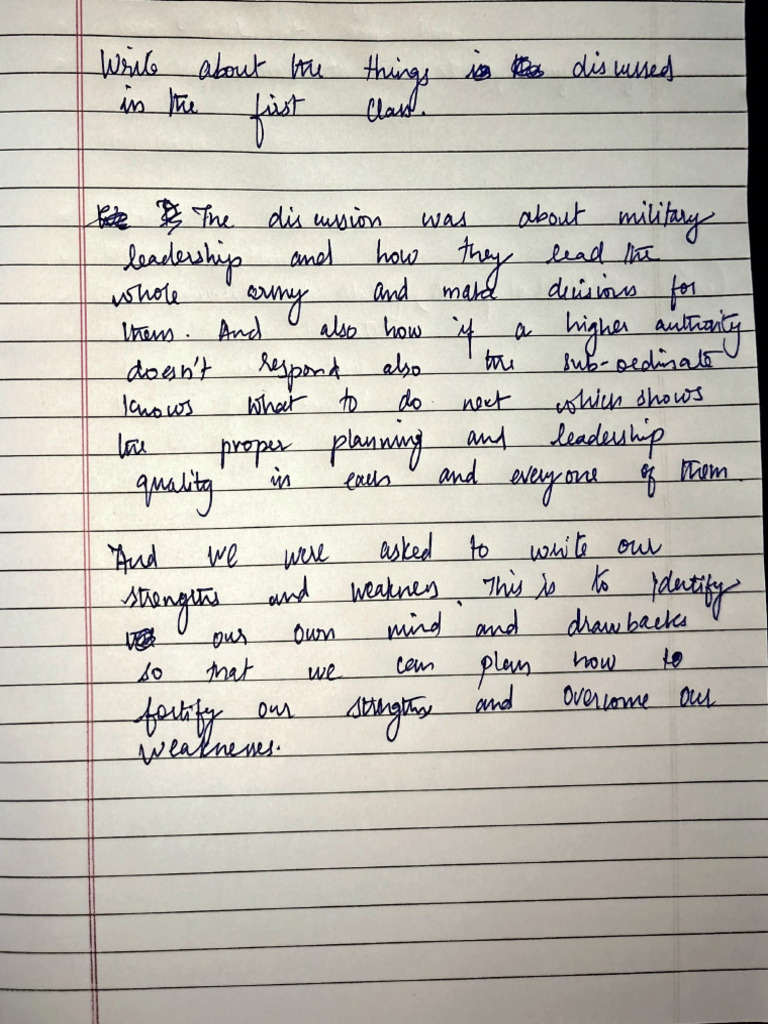 Write about the things discussed
in the first class.
The discussion was about military
leadership and how they lead the
whole army and make decisions for
them. And also how if a higher authority
doesn't respond also the sub-ordinate
knows what to do next which shows
the proper planning and leadership
quality in each and everyone of them.
And we were asked to write our
strengths and weakness. This is to identify
our own mind and drawbacks
so that we can plan how to
fortify our strengths and overcome our
weaknesses.